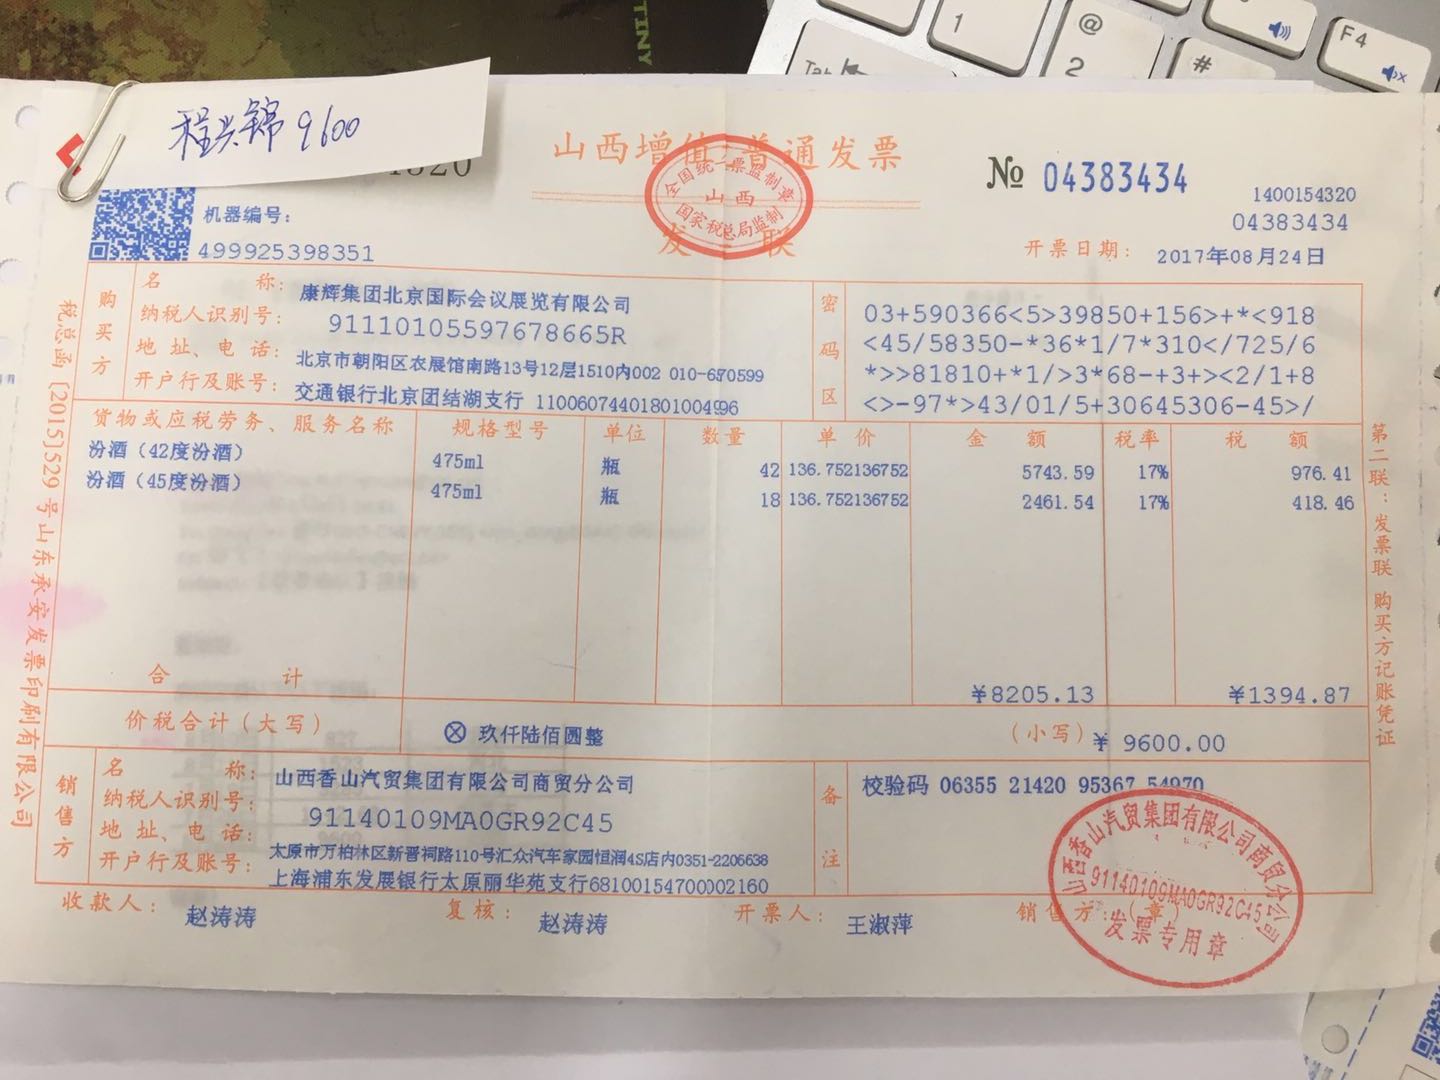 TINY
1
@
2
#
F4
Tab
程兴锦 9600
4320
山西增值 普通发票
全国统一发票监制章
山西
国家税务总局监制
发 联
№ 04383434
1400154320
04383434
机器编号:
499925398351
开票日期: 2017年08月24日
购买方
名 称: 康辉集团北京国际会议展览有限公司
纳税人识别号: 91110105597678665R
地址、电话: 北京市朝阳区农展馆南路13号12层1510内002 010-6570599
开户行及账号: 交通银行北京团结湖支行 110060744018010044996
密码区
03+590366<5>39850+156>+*<918
<45/58350-*36*1/7*310</725/6
*>>81810+*1/>3*68-+3+><2/1+8
<>-97*>43/01/5+30645306-45>/
货物或应税劳务、服务名称 规格型号 单位 数量 单价 金额 税率 税额
汾酒（42度汾酒） 475ml 瓶 42 136.752136752 5743.59 17% 976.41
汾酒（45度汾酒） 475ml 瓶 18 136.752136752 2461.54 17% 418.46
合 计 ¥8205.13 ¥1394.87
价税合计（大写） ⊗ 玖仟陆佰圆整 （小写）¥ 9600.00
销售方
名 称: 山西香山汽贸集团有限公司商贸分公司
纳税人识别号: 91140109MA0GR92C45
地址、电话: 太原市万柏林区新晋祠路110号汇众汽车家园恒润4S店内0351-2206638
开户行及账号: 上海浦东发展银行太原丽华苑支行68100154700002160
备注
校验码 06355 21420 95367 54970
收款人: 赵涛涛 复核: 赵涛涛 开票人: 王淑萍 销售方:（章）
山西香山汽贸集团有限公司商贸分公司
91140109MA0GR92C45
发票专用章
税总函［2015］529 号山东承安发票印刷有限公司
第二联：发票联 购买方记账凭证